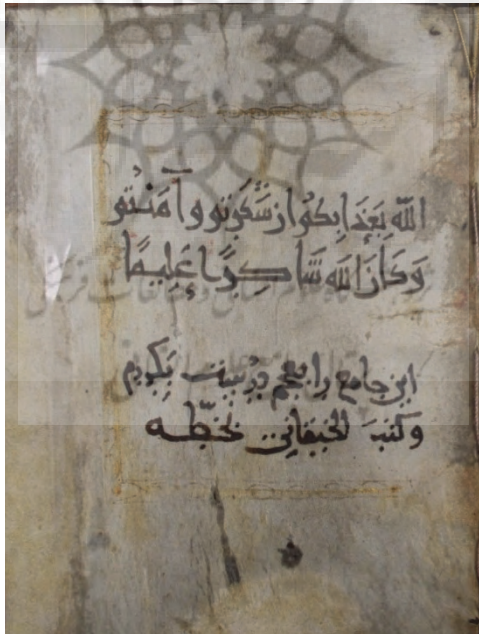 الله بِعَذَابِكُم ان شَكَرْتُم وآمَنْتُم
وَكَانَ الله شَاكِرًا عَلِيمًا
این جامع را بعجم دُرُست بکردم
وکتبَ الخیقانی بخطِّه